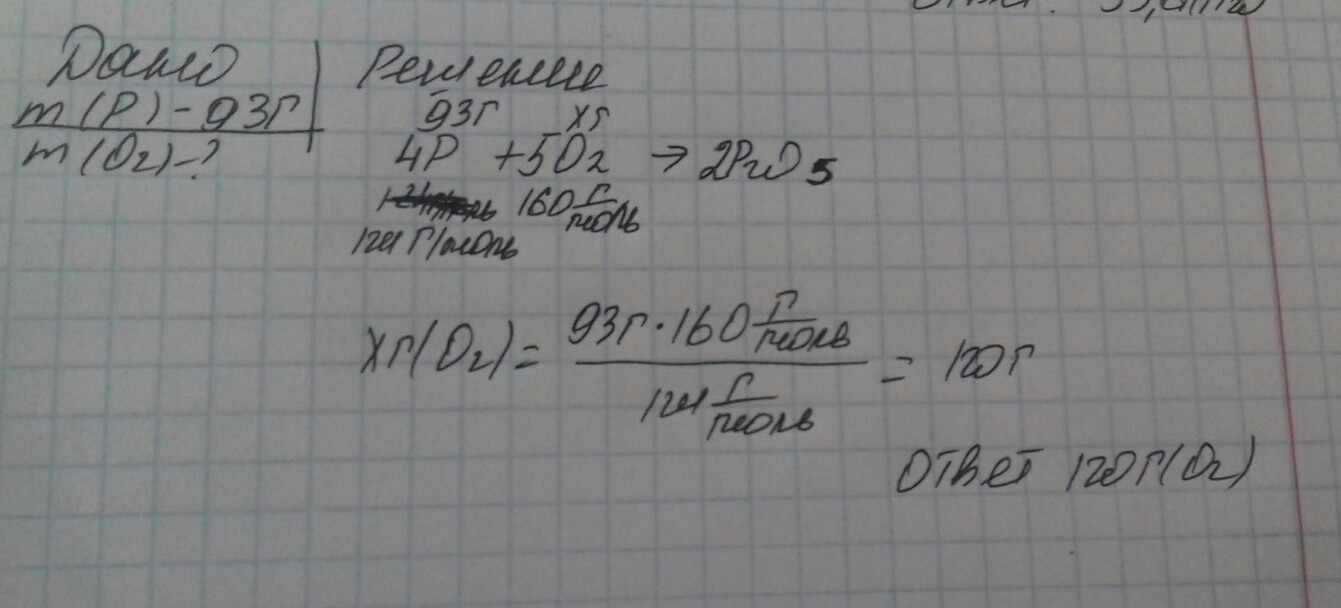 Дано
m(P) - 93г
m(O₂) - ?
Решение
93г xг
4P + 5O₂ → 2P₂O₅
160 г/моль
124 г/моль
Xг(O₂) = 93г · 160 г/моль / 124 г/моль = 120г
Ответ 120г(O₂)